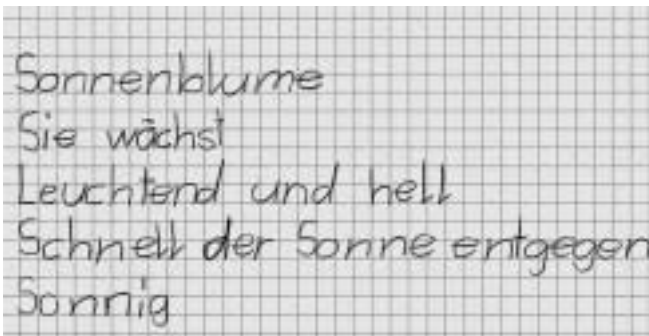 Sonnenblume
Sie wächst
Leuchtend und hell
Schnell der Sonne entgegen
Sonnig